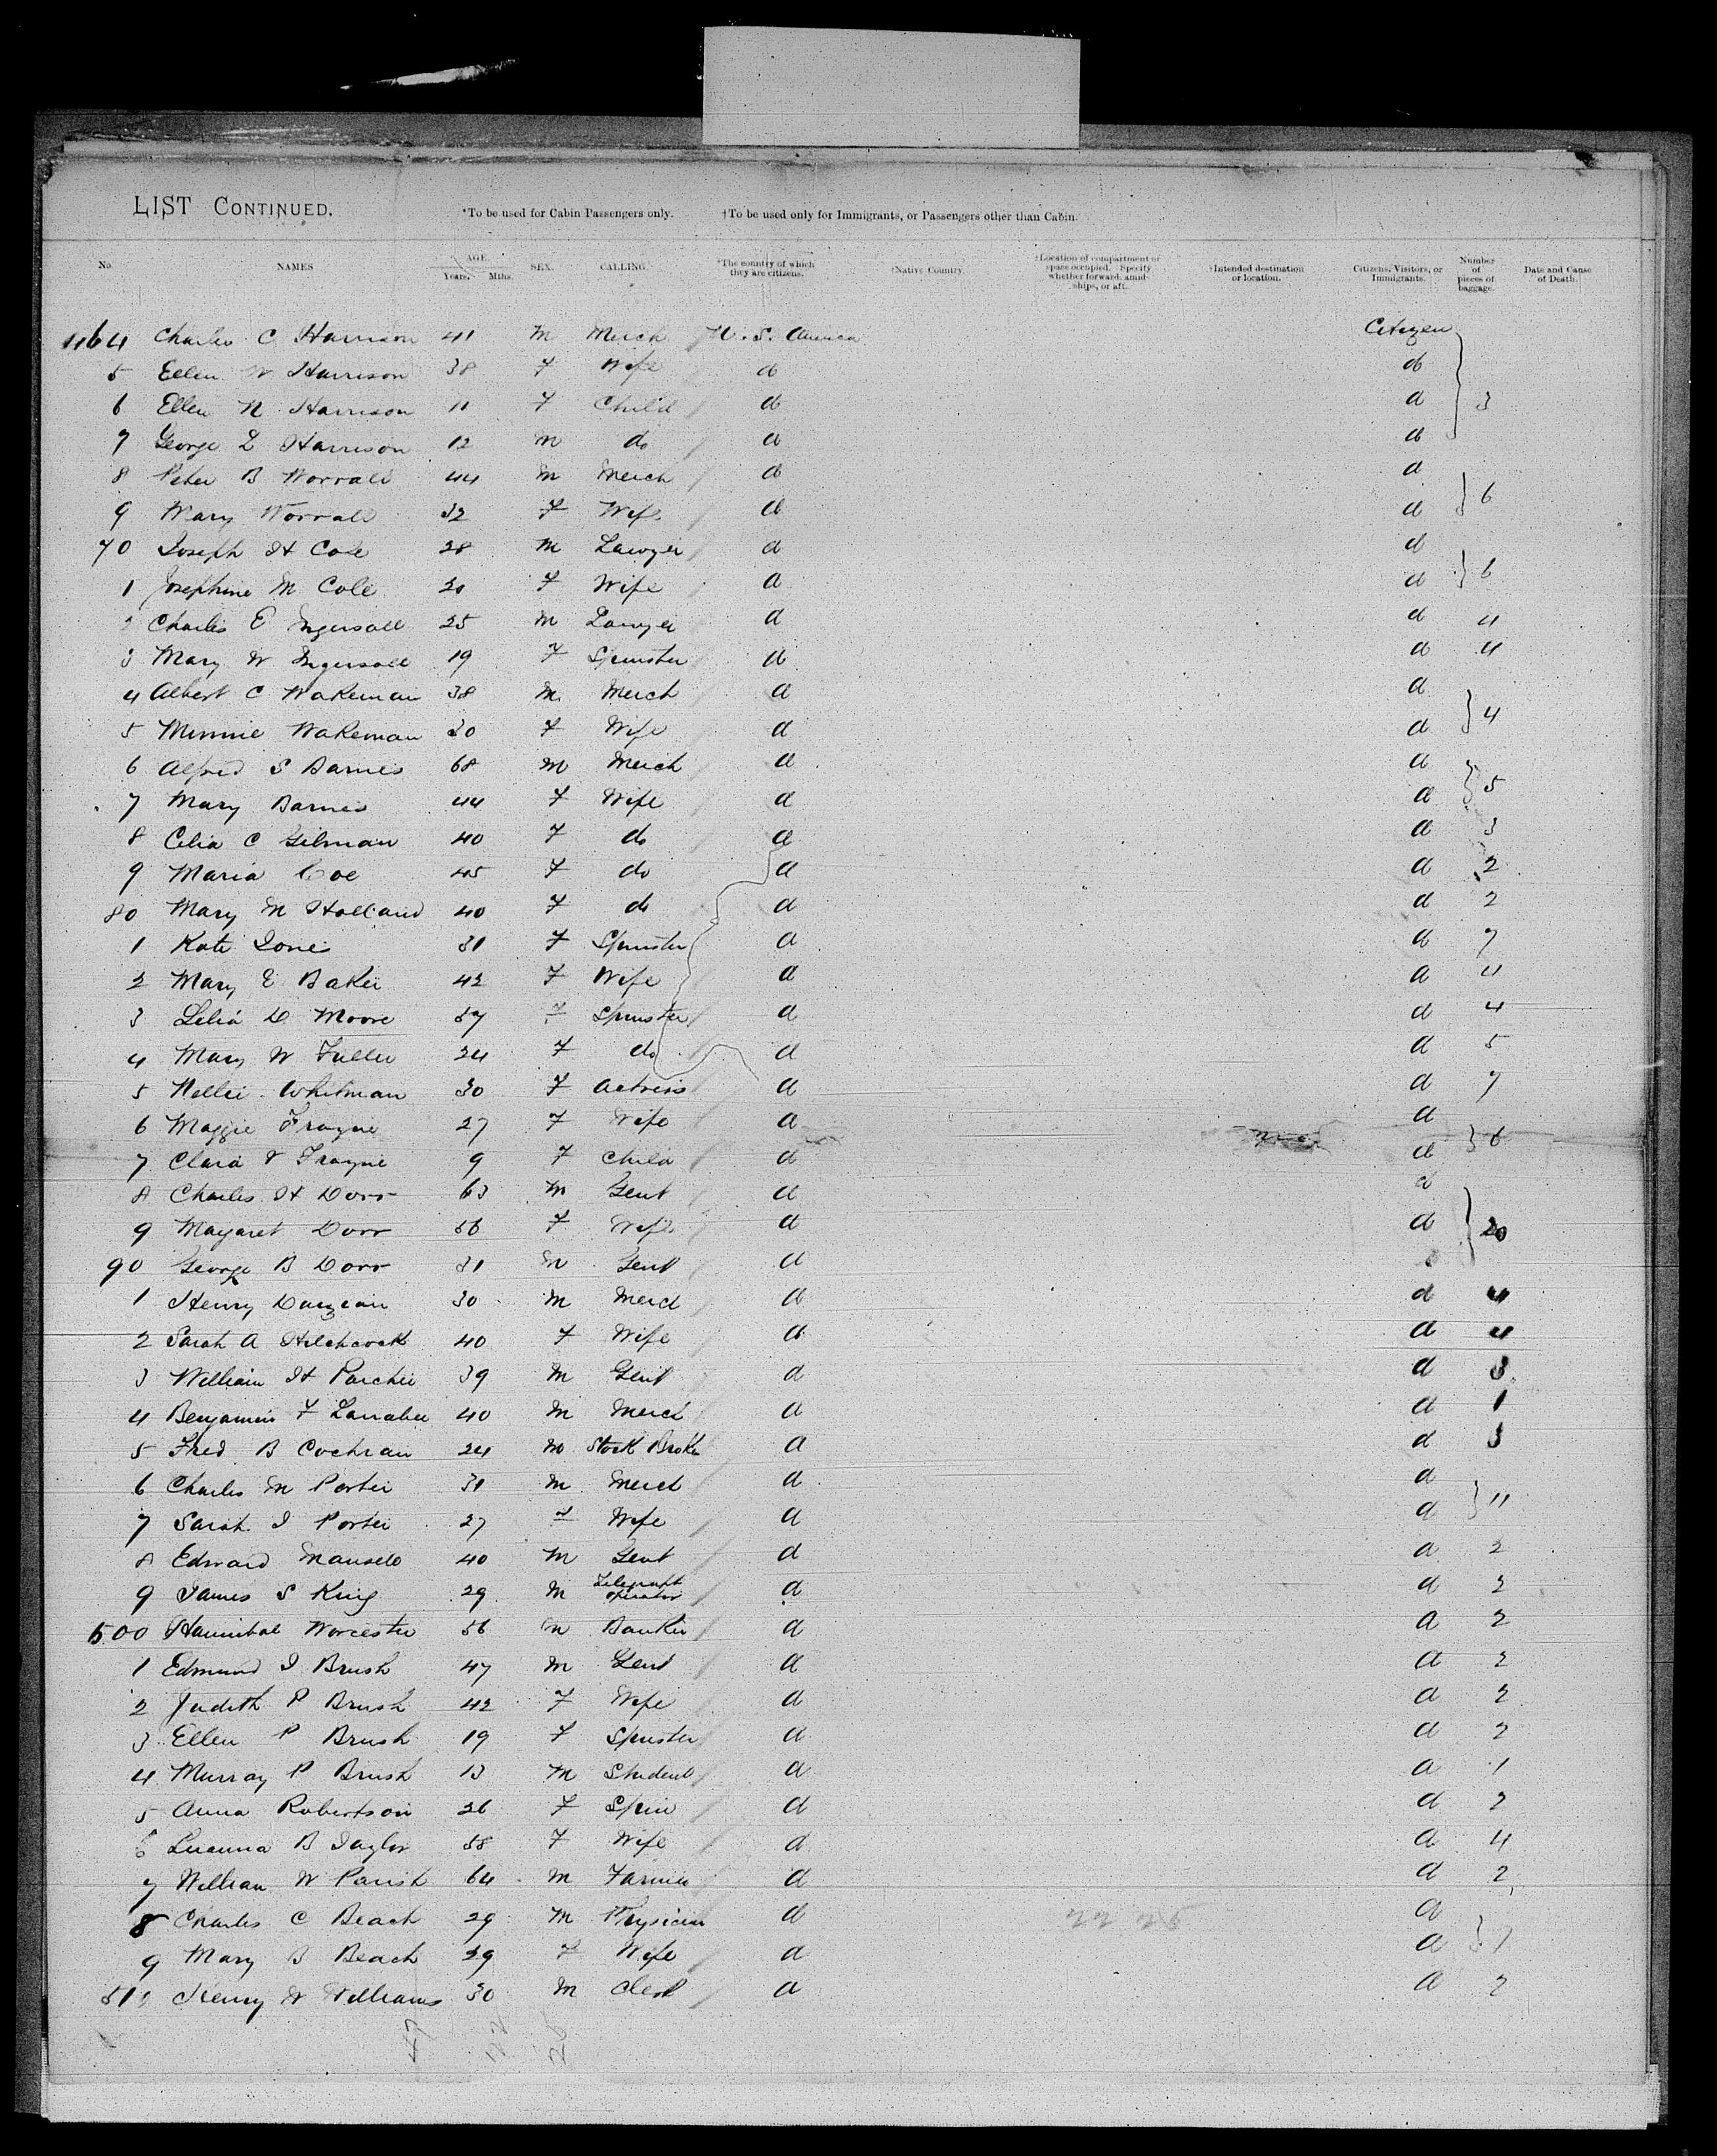 LIST CONTINUED.
*To be used for Cabin Passengers only. †To be used only for Immigrants, or Passengers other than Cabin.
No. NAMES AGE. Years. Mths. SEX. CALLING. *The country of which they are citizens. †Native Country. †Location of compartment of space occupied. Specify whether forward, amidships, or aft. †Intended destination or location. Citizens, Visitors, or Immigrants. Number of pieces of baggage. Date and Cause of Death.
464 Charles C Harrison 41 M Merch U.S. America Citizen
5 Ellen W Harrison 38 F Wife do do
6 Ellen N Harrison 11 F Child do do 3
7 George L Harrison 12 M do do do
8 Peter B Worrall 44 M Merch do do
9 Mary Worrall 32 F Wife do do 6
70 Joseph H Cole 28 M Lawyer do do
1 Josephine M Cole 20 F Wife do do 6
2 Charles E Ingersoll 25 M Lawyer do do 4
3 Mary W Ingersoll 19 F Spinster do do 4
4 Albert C Wakeman 38 M Merch do do
5 Minnie Wakeman 30 F Wife do do 4
6 Alfred S Barnes 68 M Merch do do
7 Mary Barnes 44 F Wife do do 5
8 Celia C Gilman 40 F do do do 3
9 Maria Coe 45 F do do do 2
80 Mary M Holland 40 F do do do 2
1 Kate Jones 31 F Spinster do do 7
2 Mary E Baker 42 F Wife do do 4
3 Lelia D Moore 57 F Spinster do do 4
4 Mary W Fuller 24 F do do do 5
5 Nellie Whitman 30 F Actress do do 7
6 Maggie Frayne 27 F Wife do do
7 Clara V Frayne 9 F Child do do 6
8 Charles H Dorr 63 M Gent do do
9 Magaret Dorr 56 F Wife do do 20
90 George B Dorr 31 M Gent do
1 Henry 30 M Merch do do 4
2 Sarah A Hitchcock 40 F Wife do do 4
3 William H Parcher 39 M Gent do do 3
4 Benjamin F Larrabee 40 M Merch do do 1
5 Fred B Cochran 24 M Stock Broker do do 3
6 Charles M Porter 31 M Merch do do
7 Sarah I Porter 27 F Wife do do 11
8 Edward Mansell 40 M Gent do do 2
9 James S King 29 M Telegraph Operator do do 2
500 Hannibal Worcester 56 M Banker do do 2
1 Edmund I Brush 47 M Gent do do 2
2 Judith P Brush 42 F Wife do do 2
3 Ellen P Brush 19 F Spinster do do 2
4 Murray P Brush 13 M Student do do 1
5 Anna Robertson 26 F Spin do do 2
6 Luanna B Taylor 58 F Wife do do 4
7 William W Parish 64 M Farmer do do 2
8 Charles C Beach 29 M Physician do do
9 Mary B Beach 29 F Wife do do 7
510 Henry W Williams 30 M Clerk do do 2
47 22 25